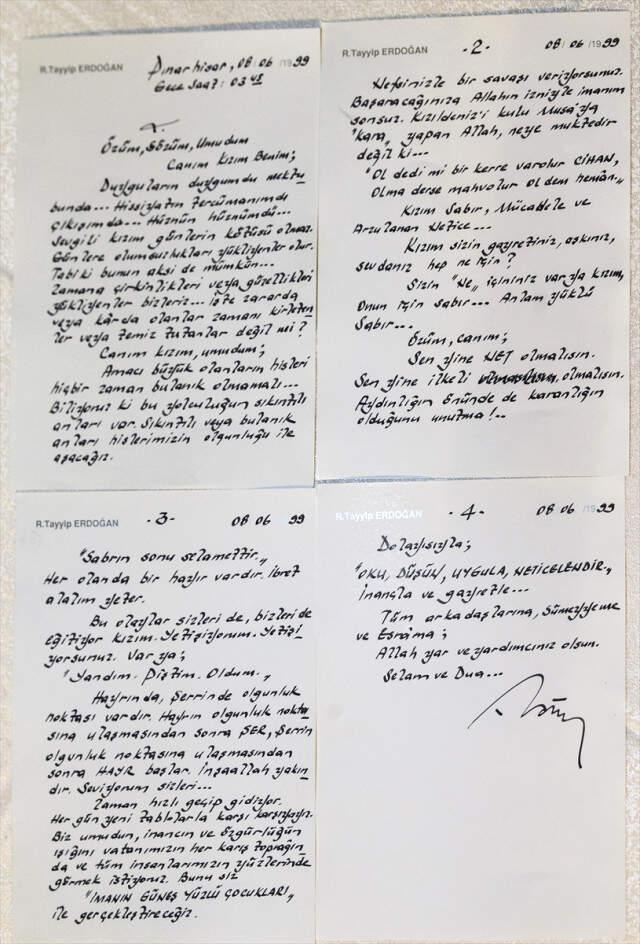 R.Tayyip ERDOĞAN
Pınarhisar, 08/06/1999
Gece Saat: 03.45
Özüm, Sözüm, Umudum
Canım Kızım Benim;
Duyguların duygumdu mektu
bunda... Hissiyatın tercümanımdı
çıkışımda... Hüznün hüznümdü...
Sevgili kızım günlerin kötüsü olmaz.
Günlere olumsuzlukları yükliyenler olur.
Tabi ki bunun aksi de mümkün...
Zamana çirkinlikleri veya güzellikleri
yükliyenler bizleriz... İşte zararda
veya kârda olanlar zamanı kirleten
ler veya temiz tutanlar değil mi?
Canım kızım, umudum;
Amacı büyük olanların hisleri
hiçbir zaman bulanık olmamalı...
Biliyoruz ki bu yolculuğun sıkıntılı
anları var. Sıkıntılı veya bulanık
anları hislerimizin olgunluğu ile
aşacağız.
R.Tayyip ERDOĞAN -2- 08/06/1999
Nefsinizle bir savaşı veriyorsunuz.
Başaracağınıza Allahın izniyle imanım
sonsuz. Kızıldeniz'i kulu Musa'ya
"Kara" yapan Allah, neye muktedir
değil ki...
"Ol dedi mi bir kerre varolur CİHAN,
Olma derse mahvolur ol dem heman."
Kızım Sabır, Mücadele ve
Arzulanan Netice...
Kızım sizin gayretiniz, aşkınız,
sevdanız hep ne için?
Sizin "Ne" içininiz var ya kızım,
Onun için sabır... Anlam yüklü
Sabır...
Özüm, canım;
Sen yine NET olmalısın.
Sen yine ilkeli olmalısın.
Aydınlığın önünde de karanlığın
olduğunu unutma!..
R.Tayyip ERDOĞAN -3- 08 06 99
"Sabrın sonu selamettir."
Her olanda bir hayır vardır. İbret
alalım yeter.
Bu olaylar sizleri de, bizleri de
eğitiyor kızım. Yetişiyorum. Yetişi
yorsunuz. Var ya;
"Yandım. Piştim. Oldum."
Hayrında, Şerrinde olgunluk
noktası vardır. Hayrın olgunluk nokta
sına ulaşmasından sonra ŞER, Şerrin
olgunluk noktasına ulaşmasından
sonra HAYR başlar. İnşaallah yakın
dır. Seviyorum sizleri...
Zaman hızlı geçip gidiyor.
Her gün yeni tablolarla karşı karşıyayız.
Biz umudun, inancın ve özgürlüğün
ışığını vatanımızın her karış toprağın
da ve tüm insanlarımızın yüzlerinde
görmek istiyoruz. Bunu siz
"İMANIN GÜNEŞ YÜZLÜ ÇOCUKLARI"
ile gerçekleştireceğiz.
R.Tayyip ERDOĞAN -4- 08 06 /1999
Dolayısıyla;
"OKU, DÜŞÜN, UYGULA, NETİCELENDİR."
İnançla ve gayretle...
Tüm arkadaşlarına, Sümeyyeme
ve Esrâma;
Allah yar ve yardımcınız olsun.
Selam ve Dua...